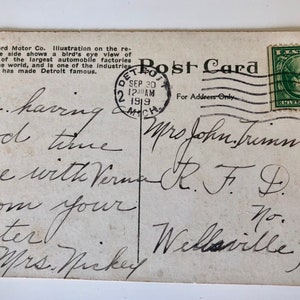 ord Motor Co. Illustration on the re-
e side shows a bird's eye view of
of the largest automobile factories
the world, and is one of the industries
has made Detroit famous.
Post Card
For Address Only.
DETROIT
SEP 30
12 AM
1919
MICH.
2
having
d time
e with Verna
om your
ter
Mrs. Nickey
Mrs John
R. F. D.
No.
Wellsville